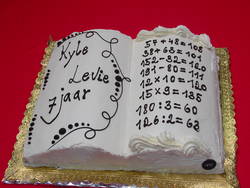 Kyle
Levie
7 jaar
57+48=105
38+63=101
152-32=120
191-80=111
12×10=120
15×9=135
180:3=60
126:2=63